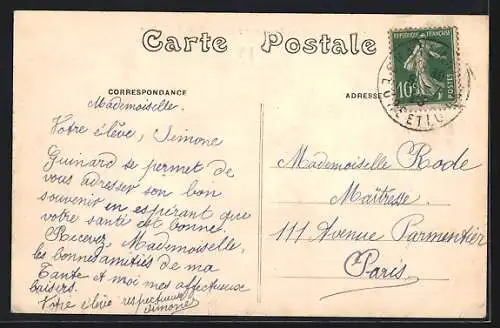 Carte Postale
CORRESPONDANCE
ADRESSE
REPUBLIQUE FRANÇAISE
10c
POSTES
Mademoiselle.
Votre élève, Simone
Guinard se permet de
vous adresser son bon
souvenir en espérant que
votre santé est bonne.
Recevez, Mademoiselle,
les bonnes amitiés de ma
Tante et moi mes affectueux
baisers.
Votre élève respectueuse
Simone
Mademoiselle Rode
Maîtresse.
111 Avenue Parmentier
Paris.